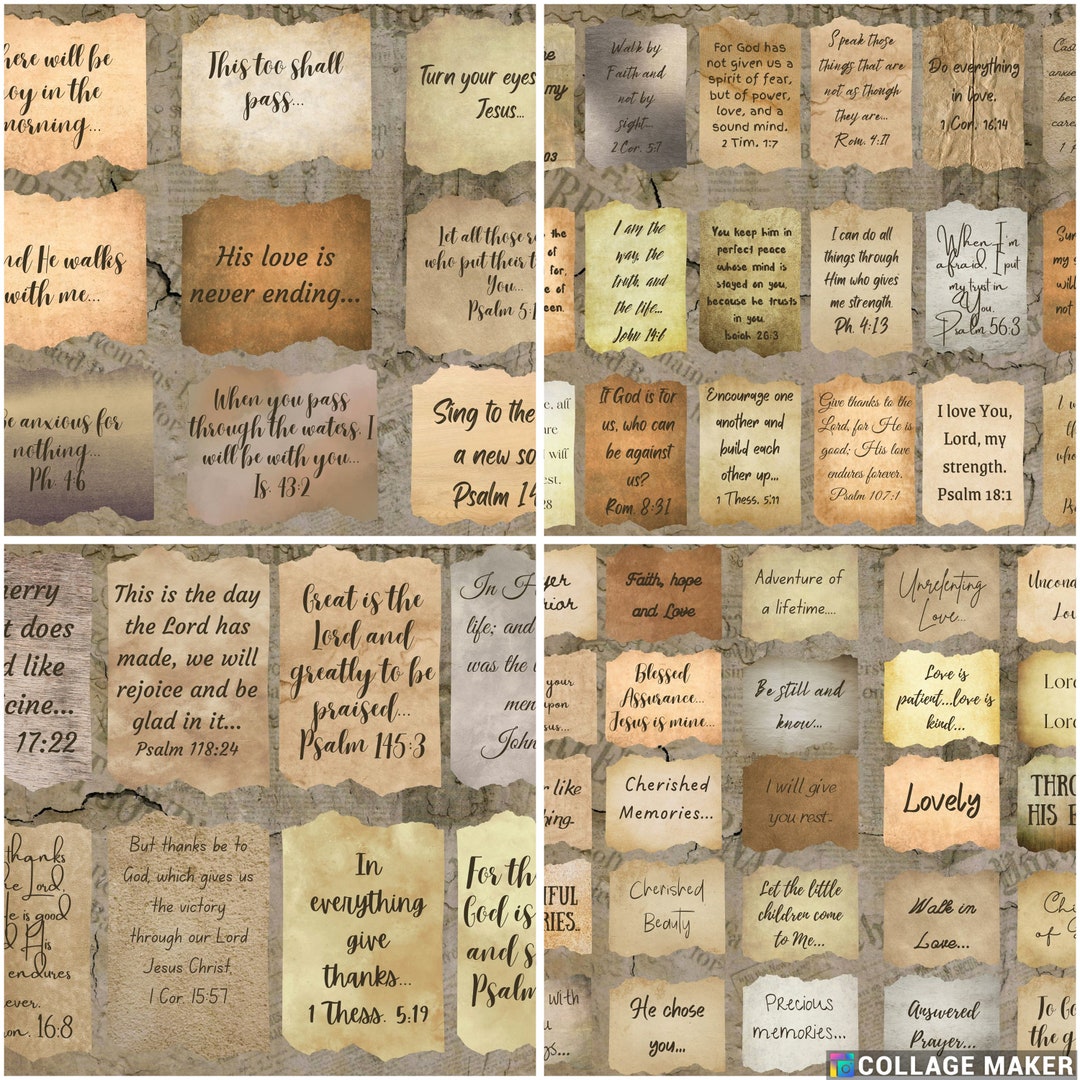 here will be
oy in the
morning...
This too shall
pass...
Turn your eyes
Jesus...
nd He walks
with me...
His love is
never ending...
Let all those
who put their
You...
Psalm 5:1
e anxious for
nothing...
Ph. 4:6
When you pass
through the waters, I
will be with you...
Is. 43:2
Sing to the
a new so
Psalm 14
my
03
Walk by
Faith and
not by
sight...
2 Cor. 5:7
For God has
not given us a
spirit of fear,
but of power,
love, and a
sound mind.
2 Tim. 1:7
Speak those
things that are
not as though
they are...
Rom. 4:17
Do everything
in love.
1 Cor. 16:14
Cast
anxie
bec
care
the
of
for,
e of
een.
I am the
way, the
truth, and
the life...
John 14:6
You keep him in
perfect peace
whose mind is
stayed on you,
because he trusts
in you.
Isaiah 26:3
I can do all
things through
Him who gives
me strength.
Ph. 4:13
When I'm
afraid, I put
my trust in
You.
Psalm 56:3
Sur
my
will
not
e, all
are
d
will
est.
28
If God is for
us, who can
be against
us?
Rom. 8:31
Encourage one
another and
build each
other up...
1 Thess. 5:11
Give thanks to the
Lord, for He is
good; His love
endures forever.
Psalm 107:1
I love You,
Lord, my
strength.
Psalm 18:1
I w
the
who
Ps
erry
t does
d like
cine...
17:22
This is the day
the Lord has
made, we will
rejoice and be
glad in it...
Psalm 118:24
Great is the
Lord and
greatly to be
praised...
Psalm 145:3
In H
life; and
was the
men
John
thanks
he Lord,
e is good
d His
endures
ever.
on. 16:8
But thanks be to
God, which gives us
the victory
through our Lord
Jesus Christ.
1 Cor. 15:57
In
everything
give
thanks...
1 Thess. 5:19
For th
God is
and s
Psalm
yer
rior
Faith, hope
and Love
Adventure of
a lifetime....
Unrelenting
Love...
Uncond
Lo
your
upon
sus...
Blessed
Assurance...
Jesus is mine...
Be still and
know...
Love is
patient...love is
kind...
Lor
Lor
r like
hing.
Cherished
Memories...
I will give
you rest..
Lovely
THRO
HIS
IFUL
RIES..
Cherished
Beauty
Let the little
children come
to Me...
Walk in
Love...
Chi
of
with
u
gs...
He chose
you...
Precious
memories...
Answered
Prayer...
To Go
the g
COLLAGE MAKER